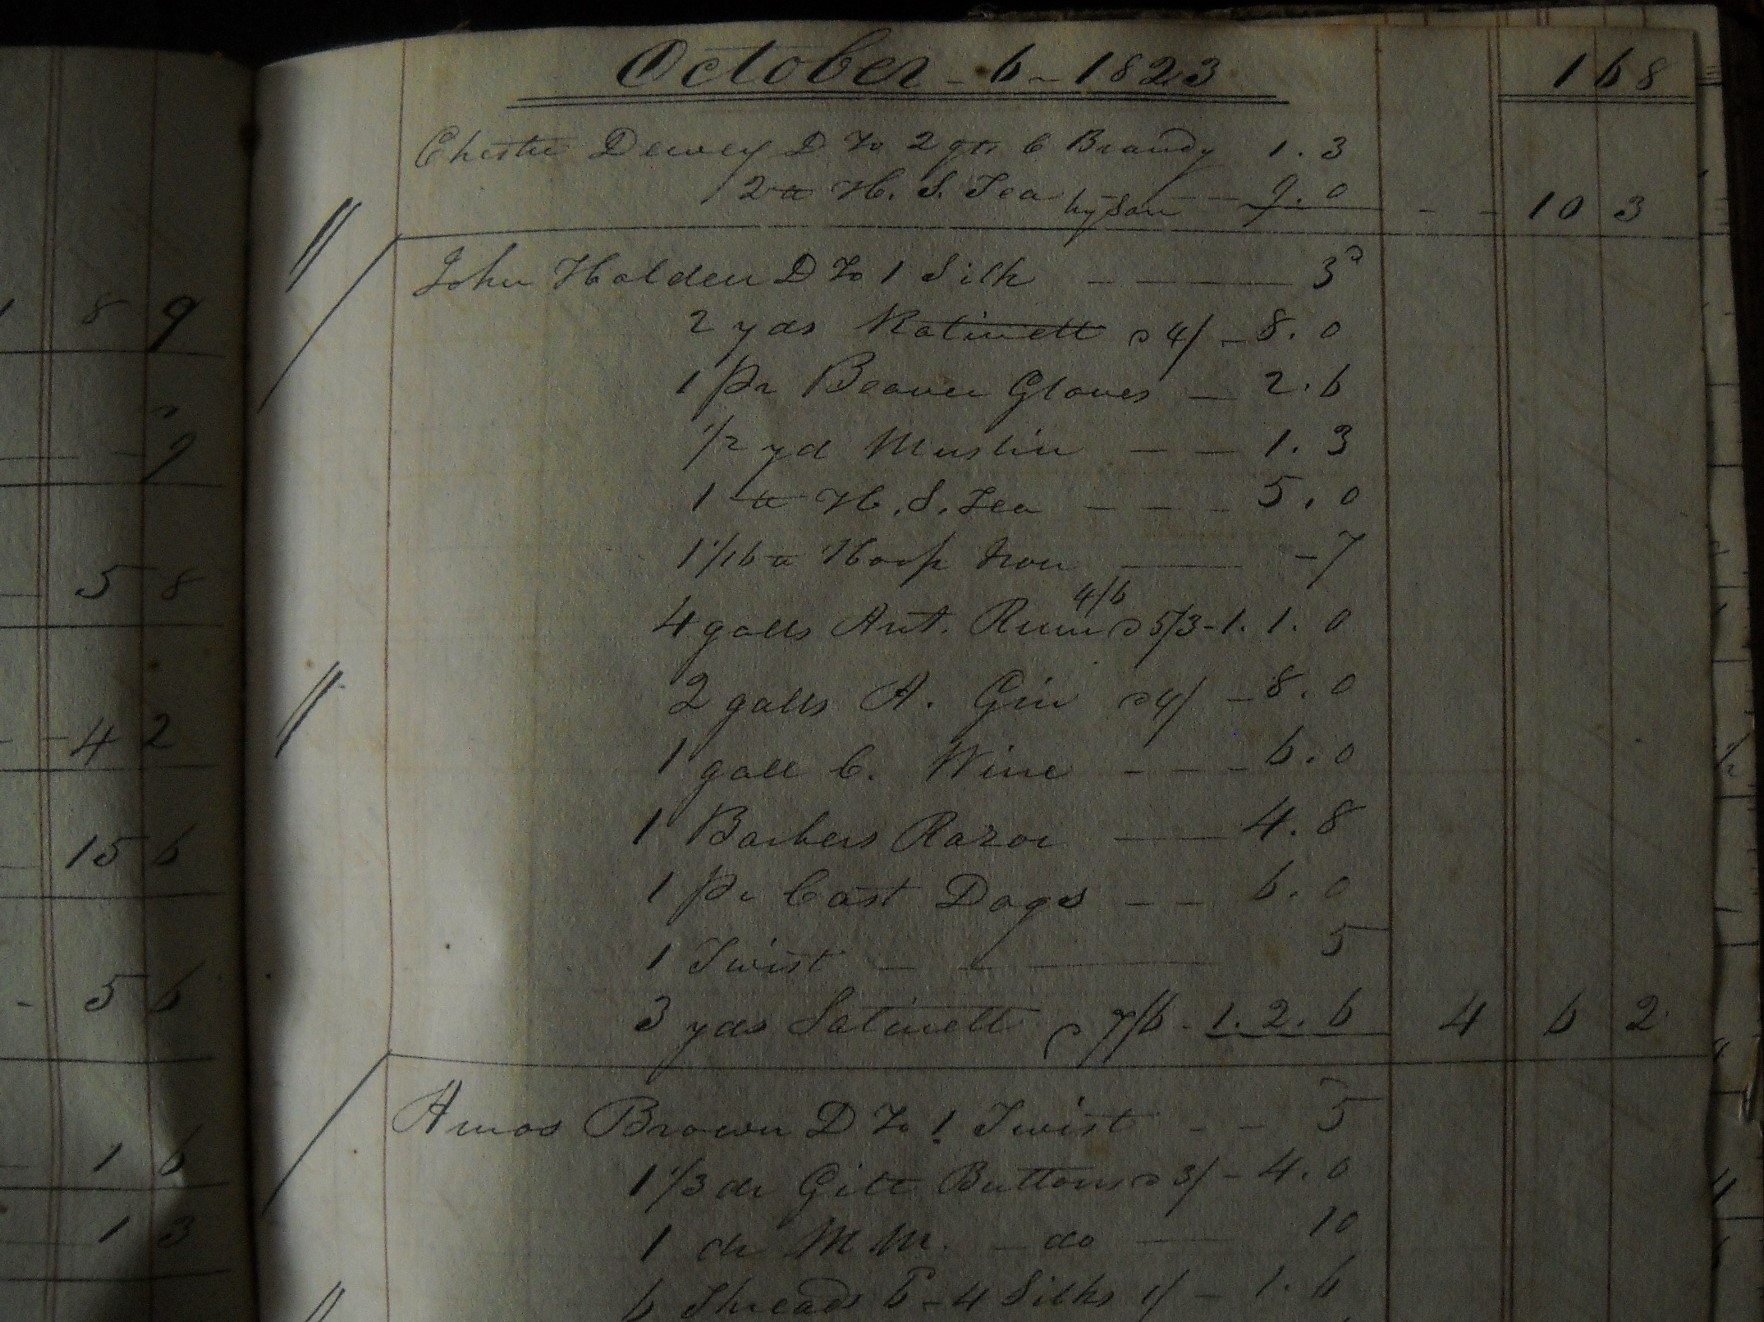 1 8 9
9
5 8
4 2
15 6
5 6
1 6
1 3
October - 6 - 1823 168
Chester Dewey D To 2 qts C Brandy 1.3
2 tt H. S. Tea hyson - - 9.0 - - 10 3
John Holden D To 1 Silk - — 3d
2 yds Ratinett @ 4/ - 8.0
1 Pr Beaver Gloves — 2.6
1/2 yd Muslin — — 1.3
1 tt H. S. Tea - - - 5.0
Hoop Iron — - 7
4/6
4 galls Ant. Rum @ 5/3 - 1.1.0
2 galls A. Gin @ 4/ - 8.0
1 gall C. Wine - - - 6.0
1 Barbers Razor — 4.8
1 Pr Cast Dogs — — 6.0
1 Twist — — — 5
3 yds Satinett @ 7/6 - 1.2.6 4 6 2
Amos Brown D To 1 Twist - — 5
1 1/3 dz Gilt Buttons @ 3/ - 4.0
1 dz M M. - do — 10
6 Threads 6d - 4 Silks 1/ - 1.6